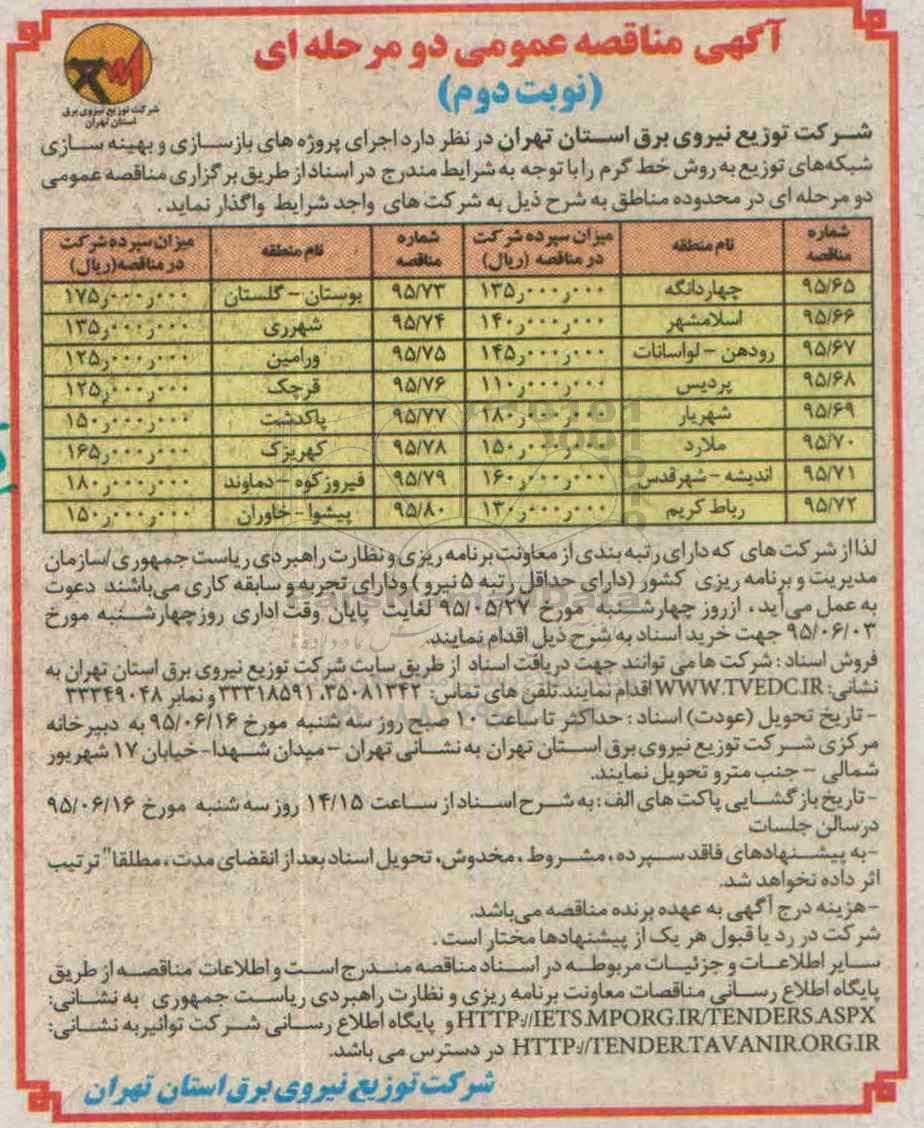 آگهی مناقصه عمومی دو مرحله ای
(نوبت دوم)
شرکت توزیع نیروی برق
استان تهران
شرکت توزیع نیروی برق استان تهران در نظر دارد اجرای پروژه های بازسازی و بهینه سازی
شبکه‌های توزیع به روش خط گرم را با توجه به شرایط مندرج در اسناد از طریق برگزاری مناقصه عمومی
دو مرحله ای در محدوده مناطق به شرح ذیل به شرکت های واجد شرایط واگذار نماید .
شماره مناقصه | نام منطقه | میزان سپرده شرکت در مناقصه (ریال) | شماره مناقصه | نام منطقه | میزان سپرده شرکت در مناقصه(ریال)
۹۵/۶۵ | چهاردانگه | ۱۳۵٫۰۰۰٫۰۰۰ | ۹۵/۷۳ | بوستان - گلستان | ۱۷۵٫۰۰۰٫۰۰۰
۹۵/۶۶ | اسلامشهر | ۱۴۰٫۰۰۰٫۰۰۰ | ۹۵/۷۴ | شهرری | ۱۳۵٫۰۰۰٫۰۰۰
۹۵/۶۷ | رودهن - لواسانات | ۱۴۵٫۰۰۰٫۰۰۰ | ۹۵/۷۵ | ورامین | ۱۲۵٫۰۰۰٫۰۰۰
۹۵/۶۸ | پردیس | ۱۱۰٫۰۰۰٫۰۰۰ | ۹۵/۷۶ | قرچک | ۱۲۵٫۰۰۰٫۰۰۰
۹۵/۶۹ | شهریار | ۱۸۰٫۰۰۰٫۰۰۰ | ۹۵/۷۷ | پاکدشت | ۱۵۰٫۰۰۰٫۰۰۰
۹۵/۷۰ | ملارد | ۱۵۰٫۰۰۰٫۰۰۰ | ۹۵/۷۸ | کهریزک | ۱۶۵٫۰۰۰٫۰۰۰
۹۵/۷۱ | اندیشه - شهرقدس | ۱۶۰٫۰۰۰٫۰۰۰ | ۹۵/۷۹ | فیروزکوه - دماوند | ۱۸۰٫۰۰۰٫۰۰۰
۹۵/۷۲ | رباط کریم | ۱۳۰٫۰۰۰٫۰۰۰ | ۹۵/۸۰ | پیشوا - خاوران | ۱۵۰٫۰۰۰٫۰۰۰
لذا از شرکت های که دارای رتبه بندی از معاونت برنامه ریزی و نظارت راهبردی ریاست جمهوری/سازمان
مدیریت و برنامه ریزی کشور (دارای حداقل رتبه ۵ نیرو ) ودارای تجربه و سابقه کاری می‌باشند دعوت
به عمل می‌آید ، ازروز چهارشنبه مورخ ۹۵/۰۵/۲۷ لغایت پایان وقت اداری روزچهارشنبه مورخ
۹۵/۰۶/۰۳ جهت خرید اسناد به شرح ذیل اقدام نمایند.
فروش اسناد : شرکت ها می توانند جهت دریافت اسناد از طریق سایت شرکت توزیع نیروی برق استان تهران به
نشانی: WWW.TVEDC.IR اقدام نمایند.تلفن های تماس: ۳۵۰۸۱۳۴۲، ۳۳۳۱۸۵۹۱ و نمابر ۳۳۳۴۹۰۴۸
- تاریخ تحویل (عودت) اسناد : حداکثر تا ساعت ۱۰ صبح روز سه شنبه مورخ ۹۵/۰۶/۱۶ به دبیرخانه
مرکزی شرکت توزیع نیروی برق استان تهران به نشانی تهران - میدان شهدا- خیابان ۱۷ شهریور
شمالی - جنب مترو تحویل نمایند.
- تاریخ بازگشایی پاکت های الف : به شرح اسناد از ساعت ۱۴/۱۵ روز سه شنبه مورخ ۹۵/۰۶/۱۶
درسالن جلسات
-به پیشنهادهای فاقد سپرده، مشروط ، مخدوش، تحویل اسناد بعد از انقضای مدت، مطلقا" ترتیب
اثر داده نخواهد شد.
-هزینه درج آگهی به عهده برنده مناقصه می‌باشد.
شرکت در رد یا قبول هر یک از پیشنهادها مختار است .
سایر اطلاعات و جزئیات مربوطه در اسناد مناقصه مندرج است و اطلاعات مناقصه از طریق
پایگاه اطلاع رسانی مناقصات معاونت برنامه ریزی و نظارت راهبردی ریاست جمهوری به نشانی:
HTTP://IETS.MPORG.IR/TENDERS.ASPX و پایگاه اطلاع رسانی شرکت توانیربه نشانی:
HTTP://TENDER.TAVANIR.ORG.IR در دسترس می باشد.
شرکت توزیع نیروی برق استان تهران